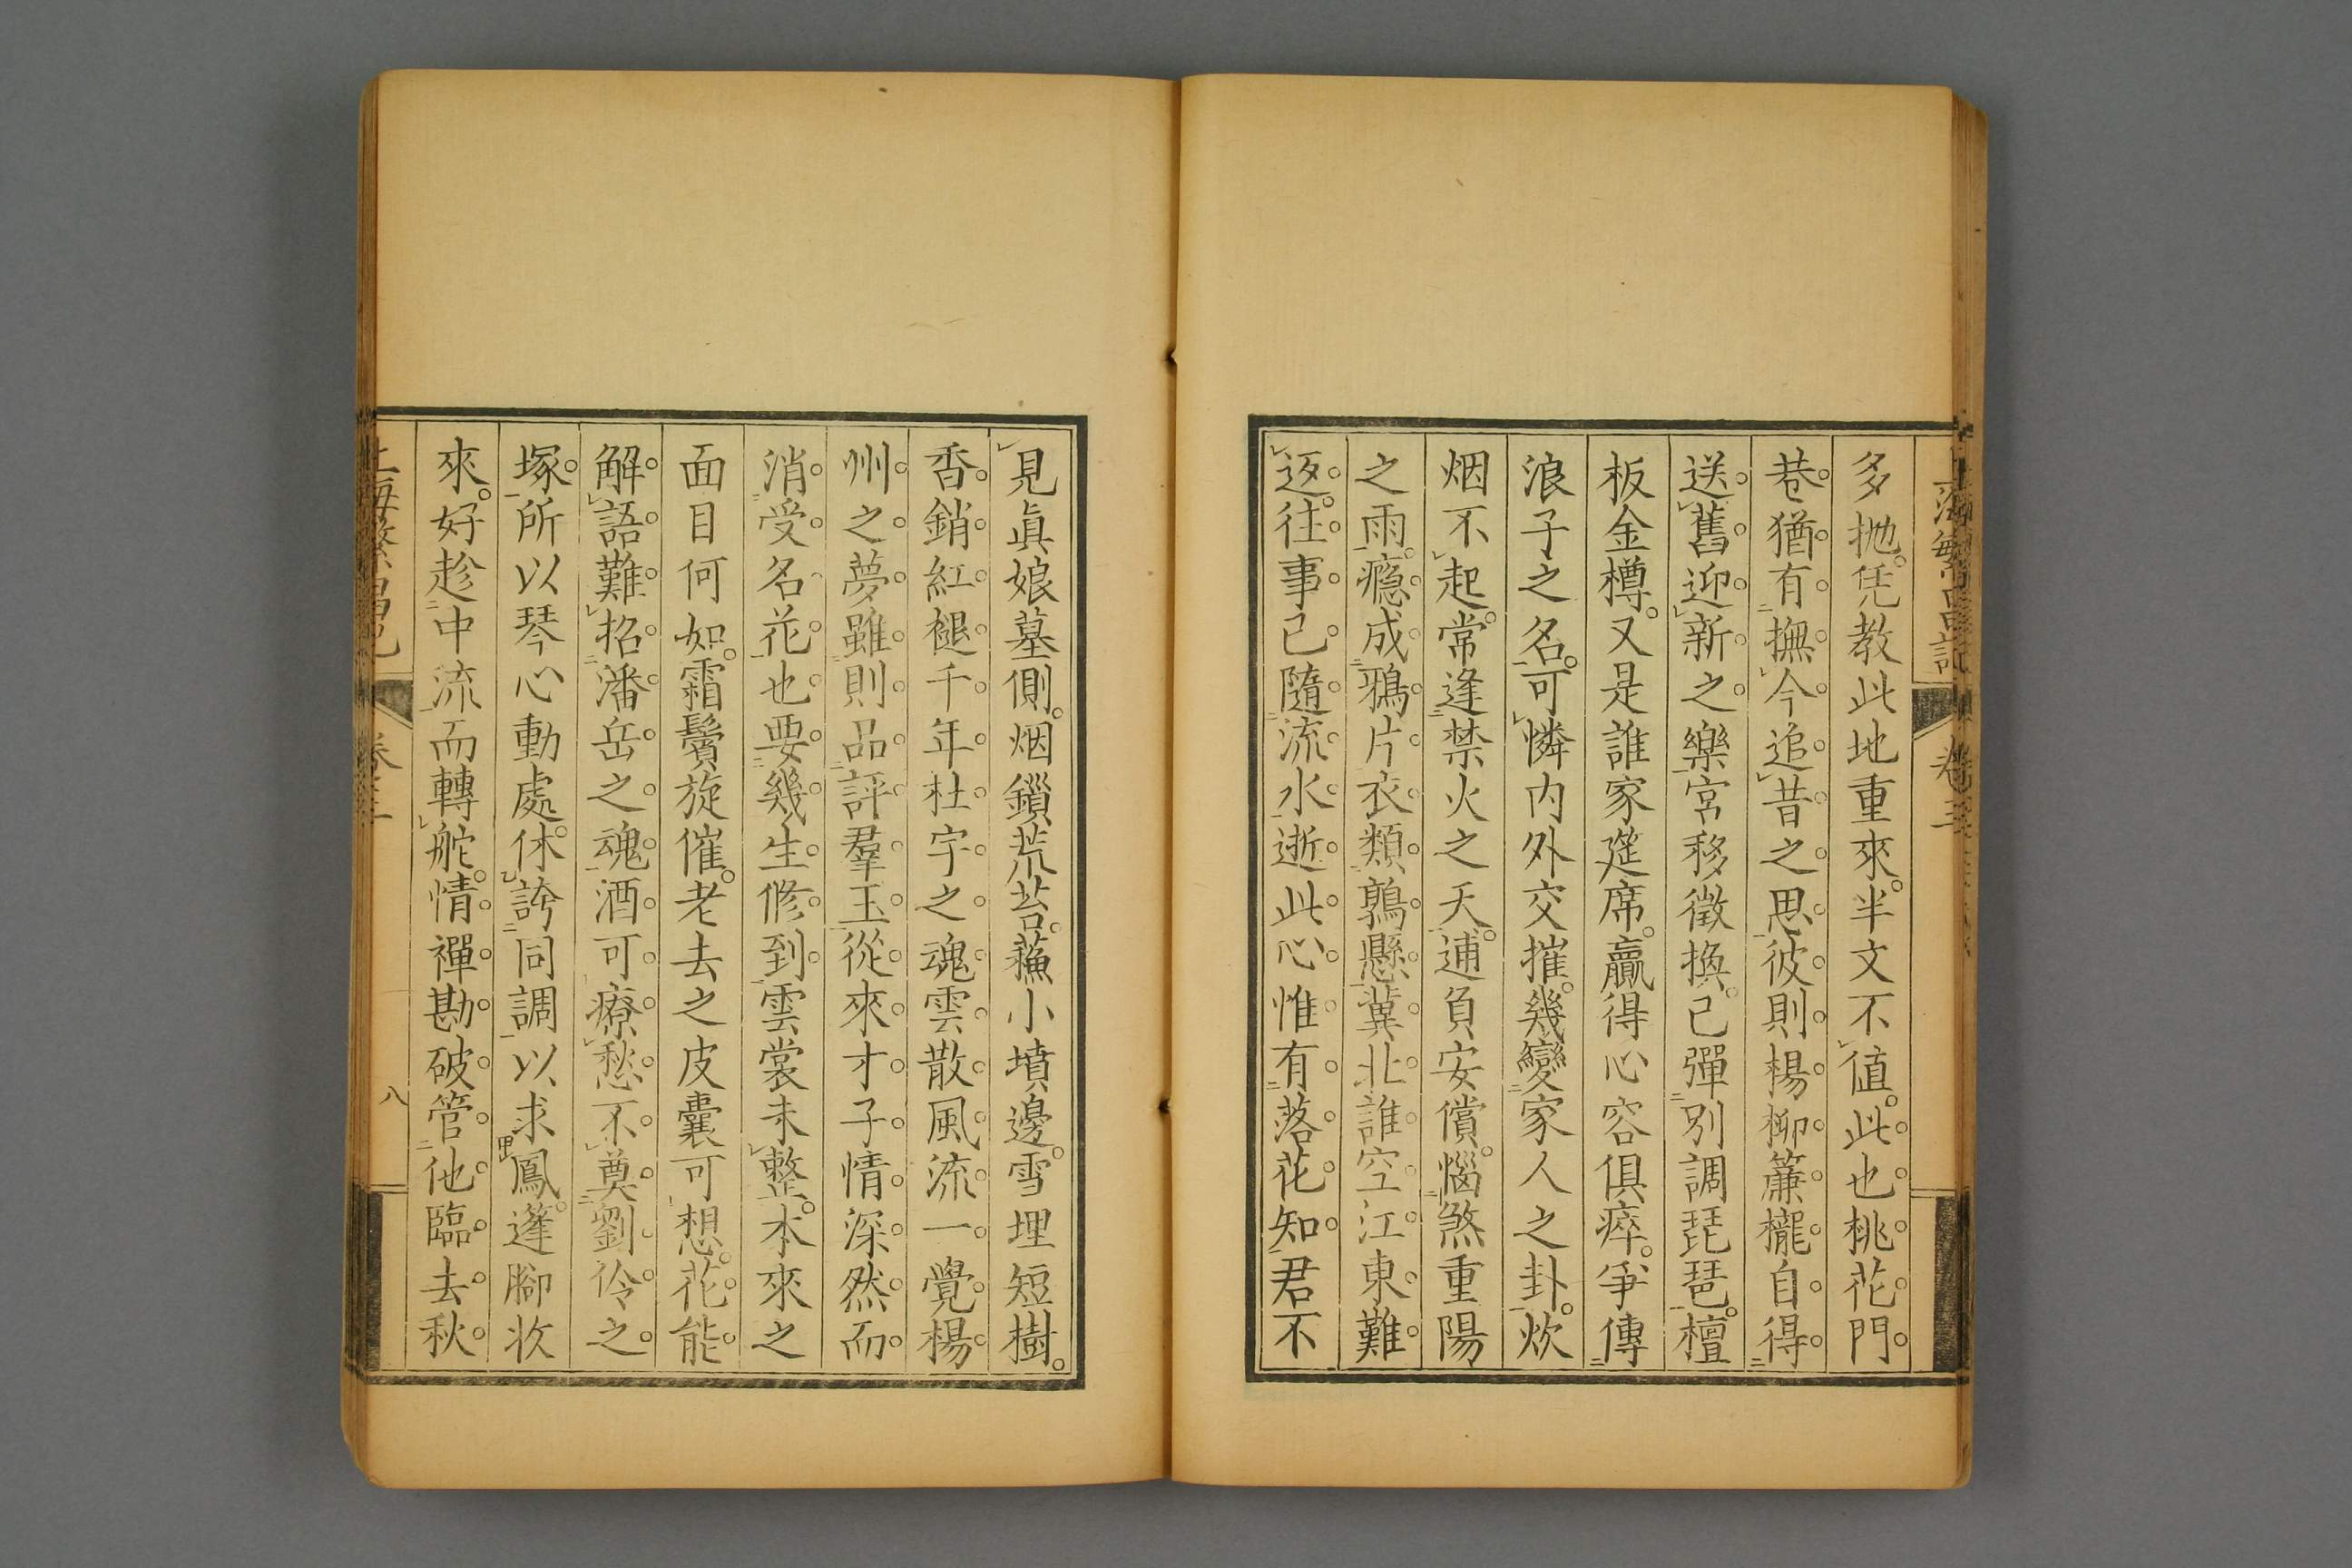 上海繁昌記 卷三
多抛。凭教此地重來。半文不値。此也桃花門
巷。猶有撫今追昔之思。彼則楊柳簾櫳。自得
送舊迎新之樂。宮移徵換。已彈別調琵琶。檀
板金樽。又是誰家筵席。贏得心容俱瘁。爭傳
浪子之名。可憐内外交摧。幾變家人之卦。炊
烟不起。常逢禁火之天。逋負安償。惱煞重陽
之雨。瘾成鴉片。衣類鶉懸。冀北誰空。江東難
返。往事已隨流水逝。此心惟有落花知。君不
見眞娘墓側。烟鎖荒苔。蘓小墳邊。雪埋短樹。
香銷紅褪。千年杜宇之魂。雲散風流。一覺楊
州之夢。雖則品評羣玉。從來才子情深。然而
消受名花。也要幾生修到。雲裳未整。本來之
面目何如。霜鬢旋催。老去之皮囊可想。花能
解語。難招潘岳之魂。酒可療愁。不奠劉伶之
塚。所以琴心動處。休誇同調以求鳳。篷脚收
來。好趁中流而轉舵。情禪勘破。管他臨去秋
上海繁昌記 卷三 八